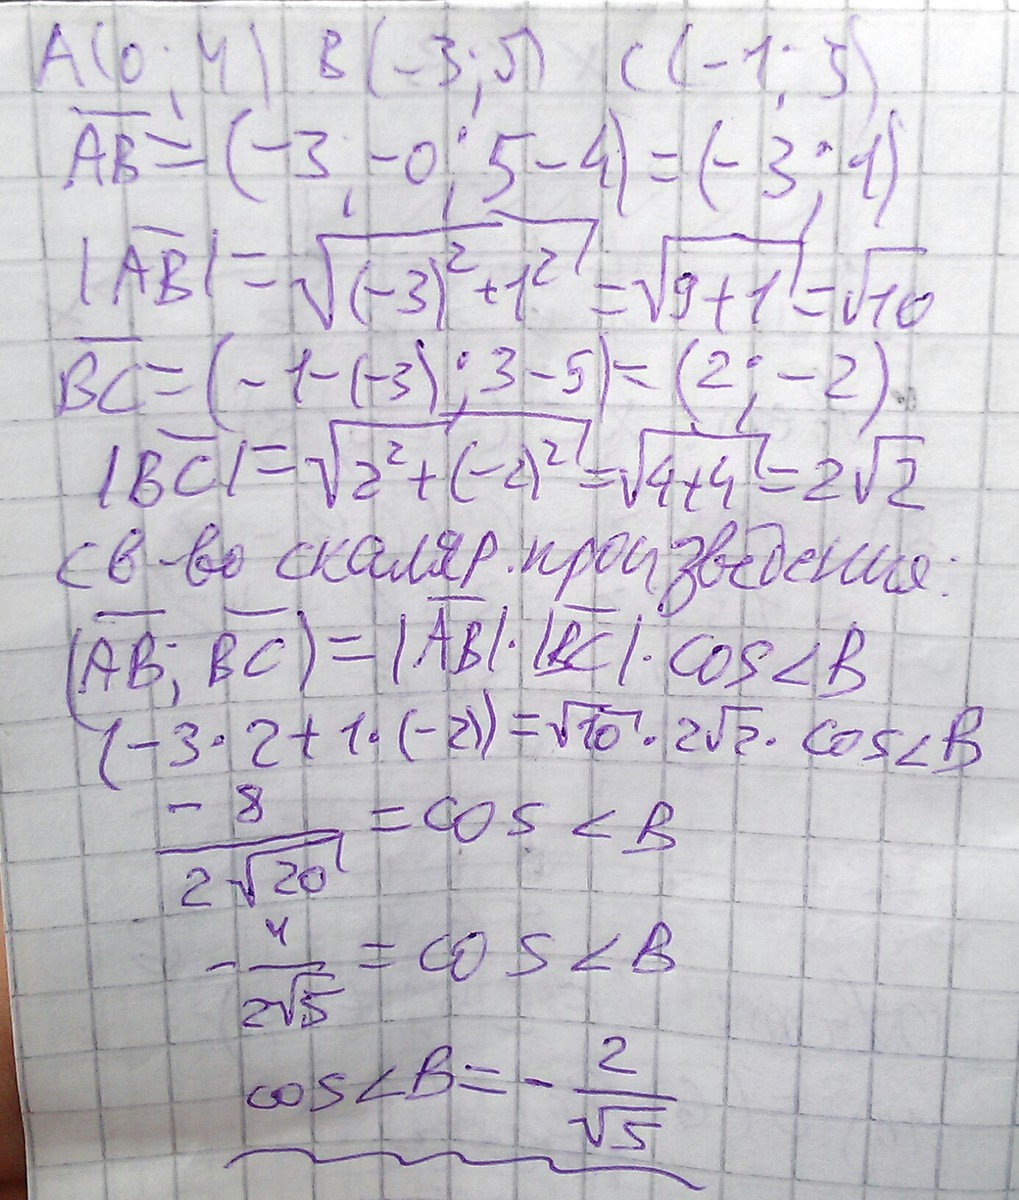 A(0; 4) B(-3; 5) C(-1; 3)
AB = (-3 - 0; 5 - 4) = (-3; 1)
|AB| = √((-3)² + 1²) = √(9 + 1) = √10
BC = (-1 - (-3); 3 - 5) = (2; -2)
|BC| = √(2² + (-2)²) = √(4 + 4) = 2√2
св-во скаляр. произведения:
(AB; BC) = |AB| · |BC| · cos∠B
(-3 · 2 + 1 · (-2)) = √10 · 2√2 · cos∠B
-8/(2√20) = cos∠B
-4/(2√5) = cos∠B
cos∠B = -2/√5